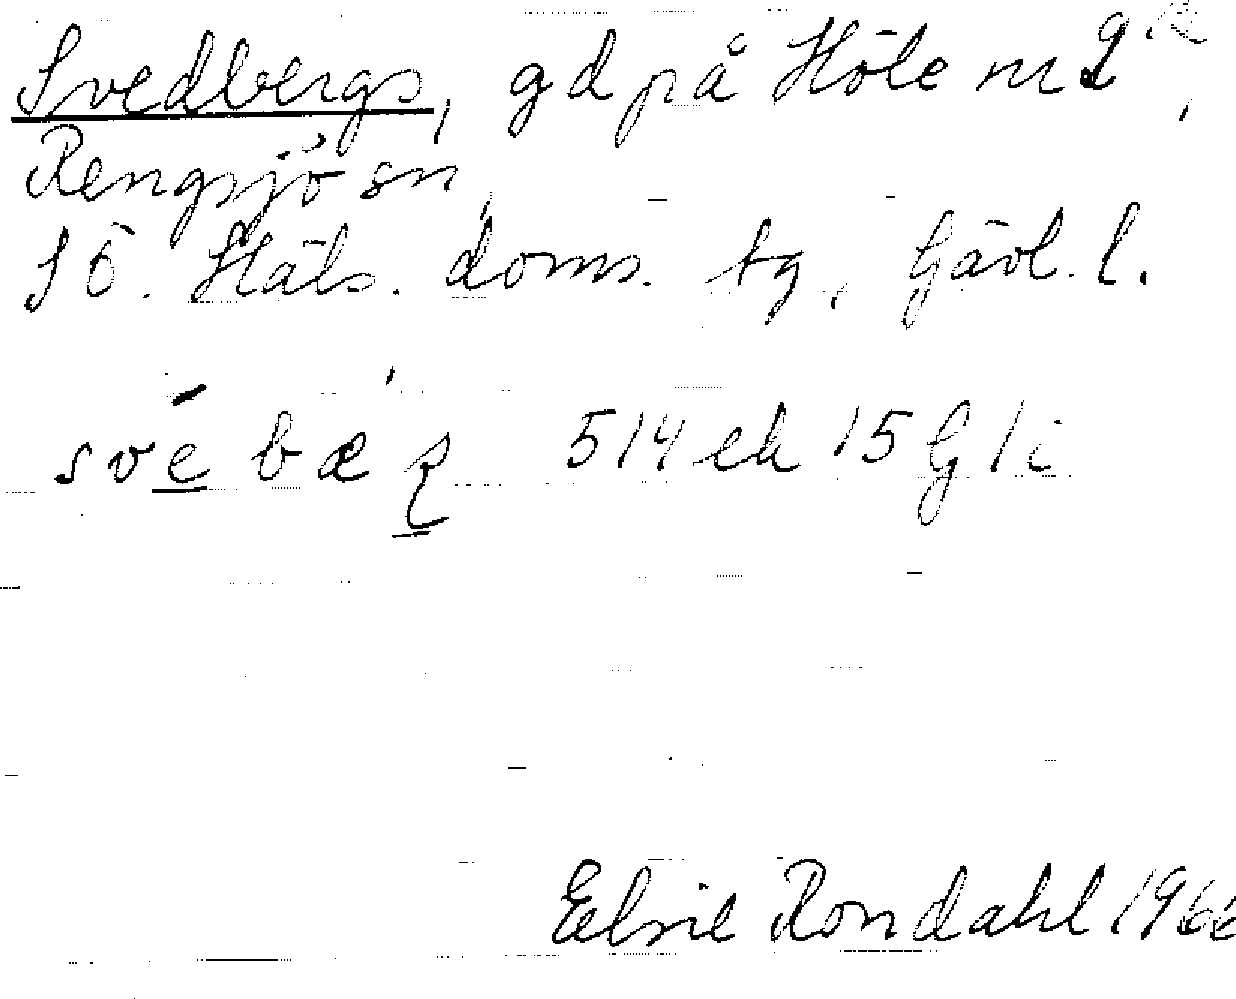 Svedbergs, gd på Höle nr 2,
Rengsjö sn,
Sö. Häls. doms. tg, Gävl. l.
svebæ 514 ek 15 G 1 i
Elsie Rondahl 1966